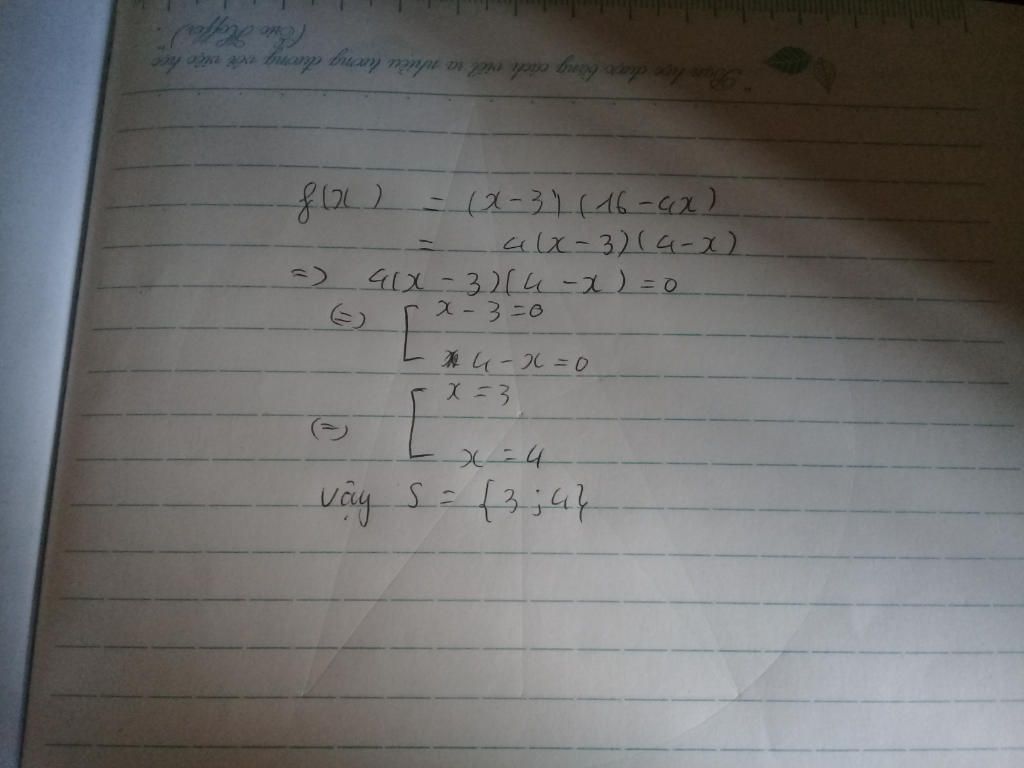 "Bạn học được bằng cách viết ra nhiều tương đương với việc học"
(Eric Hoffer)
f(x) = (x-3)(16-4x)
= 4(x-3)(4-x)
=> 4(x-3)(4-x)=0
(=) [ x-3=0
4-x=0
(=) [ x=3
x=4
Vậy S = {3;4}